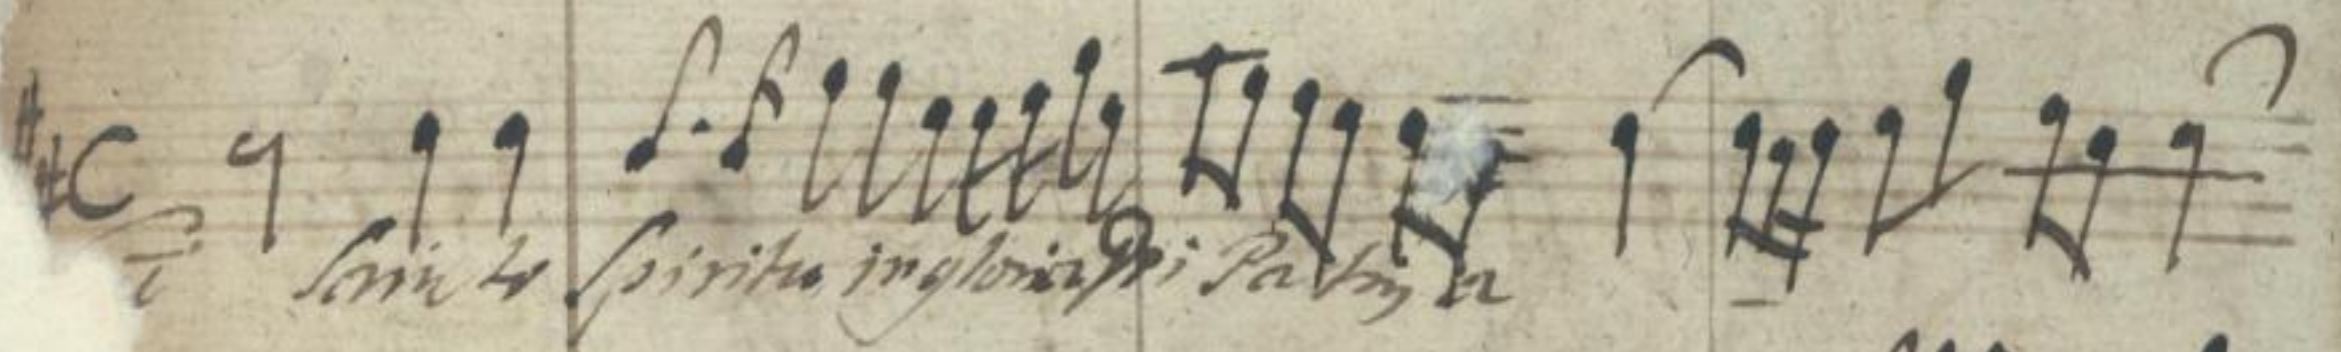 Sancto Spiritu in gloria Dei Patris a